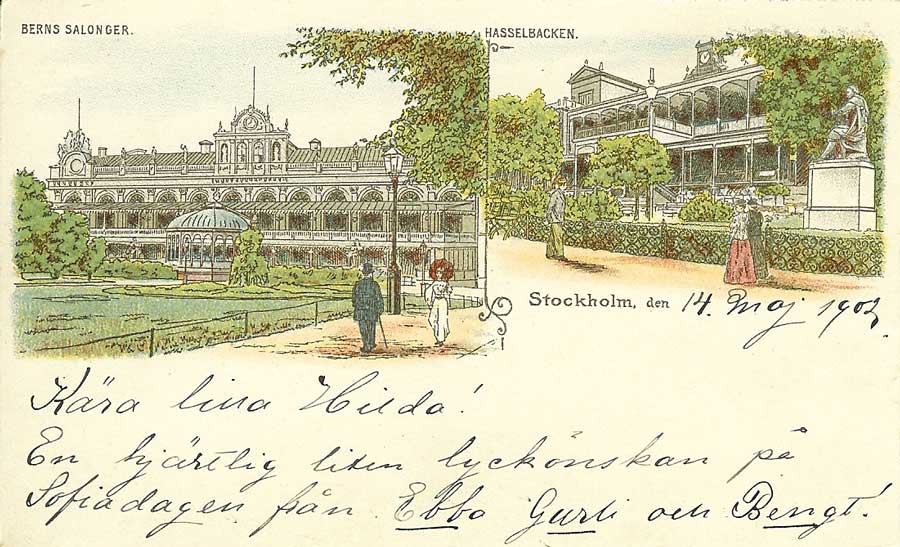 BERNS SALONGER.
HASSELBACKEN.
Stockholm, den 14. Maj 1902.
Kära lilla Hilda!
En hjärtlig liten lyckönskan på
Sofiadagen från Ebba Gurli och Bengt!